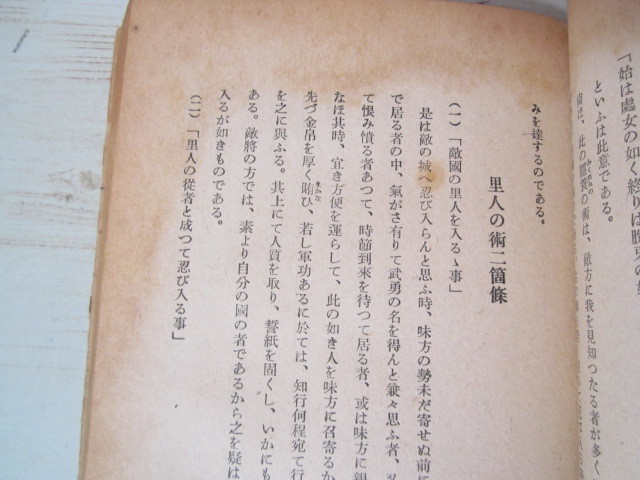 「始は處女の如く終りは脱兎の
といふは此意である。
此の隱簑の術は、敵方に我を見知つたる者が多く
みを達するのである。
里人の術二箇條
(一)「敵國の里人を入るゝ事」
是は敵の城へ忍び入らんと思ふ時、味方の勢未だ寄せぬ前に
で居る者の中、氣がさ有りて武勇の名を得んと兼々思ふ者、
て恨み憤る者あつて、時節到來を待つて居る者、或は味方に親
なほ其時、宜き方便を運らして、此の如き人を味方に召寄るか
先づ金帛を厚く賄ひ、若し軍功あるに於ては、知行何程宛て行
を之に與ふる。其上にて人質を取り、誓紙を固くし、いかにも
ある。敵將の方では、素より自分の國の者であるから之を疑は
入るが如きものである。
(二)「里人の從者と成つて忍び入る事」